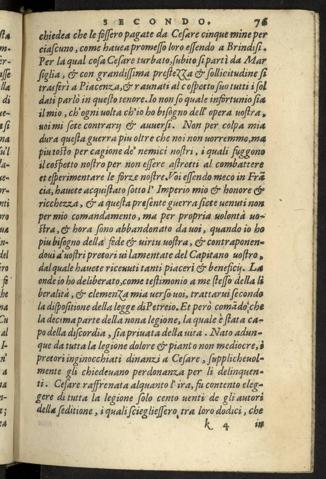 SECONDO. 76
chiedea che le fossero pagate da Cesare cinque mine per
ciascuno, come hauea promesso loro essendo a Brindisi.
Per la qual cosa Cesare turbato, subito si partì da Mar
siglia, & con grandissima prestezza & sollicitudine si
trasferì a Piacenza, & raunati al cospetto suo tutti i sol
dati parlò in questo tenore. Io non so quale infortunio sia
il mio, ch'ogni uolta ch'io ho bisogno dell'opera uostra,
uoi mi sete contrary & auuersi. Non per colpa mia
dura questa guerra piu oltre che noi non uorremmo, ma
piu tosto per cagione de' nemici nostri, i quali fuggono
il cospetto nostro per non essere astretti al combattere
et esperimentare le forze nostre. Voi essendo meco in Frã
cia, hauete acquistato sotto l'Imperio mio & honore &
ricchezza, & a questa presente guerra siete uenuti non
per mio comandamento, ma per propria uolontà uo=
stra, & hora sono abbandonato da uoi, quando io ho
piu bisogno della fede & uirtù uostra, & contraponen=
doui a uostri pretori ui lamentate del Capitano uostro,
dal quale hauete riceuuti tanti piaceri & beneficij. La
onde io ho deliberato, come testimonio a me stesso della li
beralità, & clemenza mia uerso uoi, trattarui secondo
la dispositione della legge di Petreio. Et però comãdo che
la decima parte della nona legione, la quale è stata ca=
po della discordia, sia priuata della uita. Nato adun=
que da tutta la legione dolore & pianto non mediocre, i
pretori inginocchiati dinanzi a Cesare, supplicheuol=
mente gli chiedeuano perdonanza per li delinquen=
ti. Cesare raffrenata alquanto l'ira, fu contento eleg=
gere di tutta la legione solo cento uenti de gli autori
della seditione, i quali sciegliessero tra loro dodici, che
k 4 in